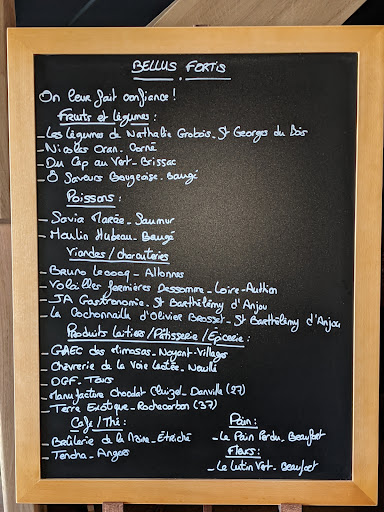 BELLUS FORTIS
On leur fait confiance !
Fruits et légumes :
- Les légumes de Nathalie Grobois - St Georges du Bois
- Nicolas Oran - Corné
- Du Cap au Vert - Brissac
- Ô Saveurs Baugeoise - Baugé
Poissons :
- Savia Marée - Saumur
- Moulin Hubeau - Baugé
Viandes / charcuteries
- Bruno Lecocq - Allonnes
- Volailles fermières Dessomme - Loire-Authion
- JA Gastronomie - St Barthélémy d'Anjou
- La Cochonnaille d'Olivier Brosset - St Barthélémy d'Anjou
Produits laitiers / Pâtisserie / Épicerie :
- GAEC des Mimosas - Noyant-Villages
- Chèvrerie de la Voie Lactée - Neuillé
- DGF - Tours
- Manufacture Chocolat Cluizel - Damville (27)
- Terre Exotique - Rochecorbon (37)
Café / Thé :
- Brûlerie de la Noire - Étriché
- Tencha - Angers
Pain :
- Le Pain Perdu - Beaufort
Fleurs :
- Le Lutin Vert - Beaufort